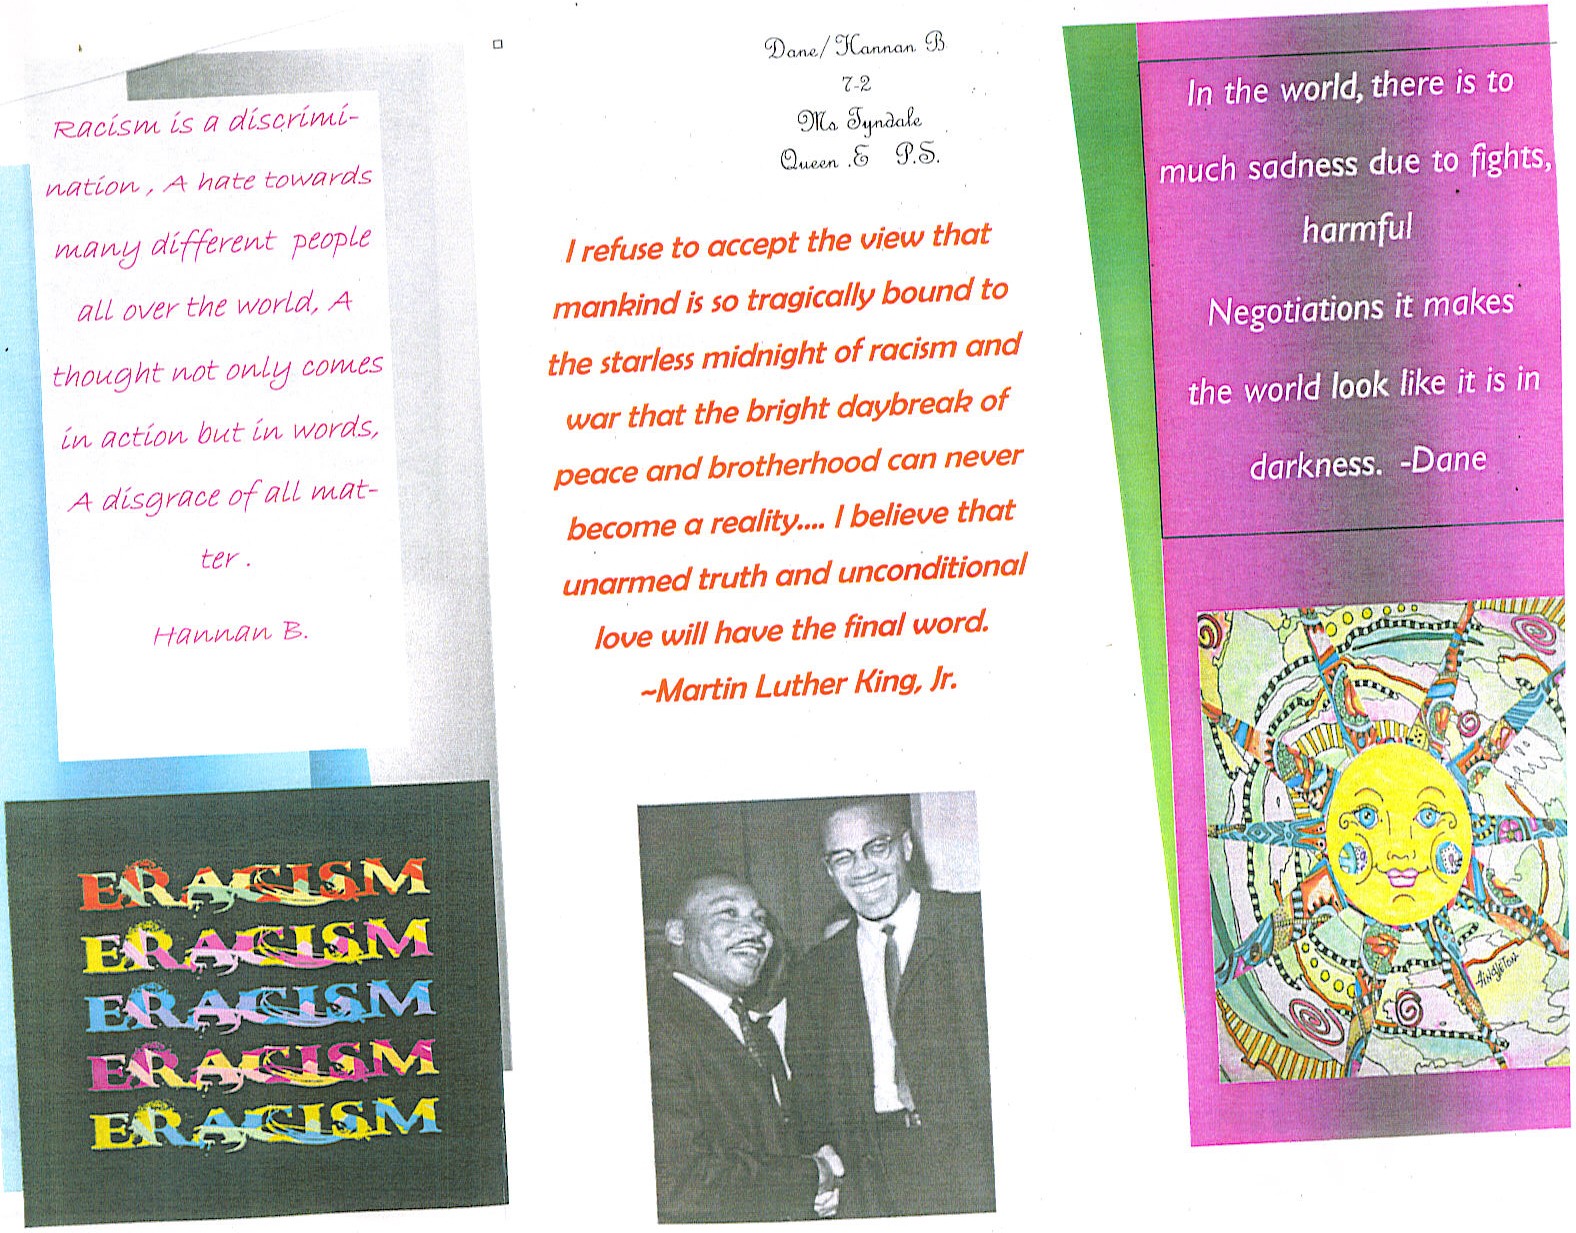 Racism is a discrimi-
nation , A hate towards
many different people
all over the world, A
thought not only comes
in action but in words,
A disgrace of all mat-
ter .
Hannan B.
ERACISM
ERACISM
ERACISM
ERACISM
ERACISM
Dane/Hannan B
7-2
Ms Tyndale
Queen .E P.S.
I refuse to accept the view that
mankind is so tragically bound to
the starless midnight of racism and
war that the bright daybreak of
peace and brotherhood can never
become a reality.... I believe that
unarmed truth and unconditional
love will have the final word.
~Martin Luther King, Jr.
In the world, there is to
much sadness due to fights,
harmful
Negotiations it makes
the world look like it is in
darkness. -Dane